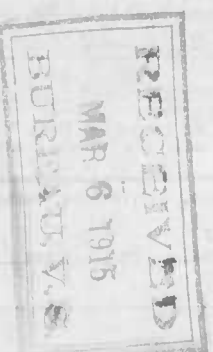 RECEIVED
MAR 6 1915
BUREAU, V. S.